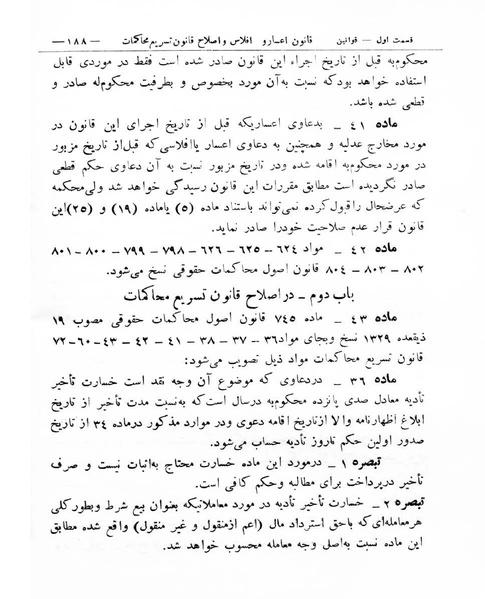 قسمت اول — قوانین
قانون اعسار و افلاس و اصلاح قانون تسریع محاکمات
— ۱۸۸ —
محکوم‌به قبل از تاریخ اجراء این قانون صادر شده است فقط در موردی قابل
استفاده خواهد بود که نسبت به‌آن مورد بخصوص و بطرفیت محکوم‌له صادر و
قطعی شده باشد.
ماده ۴۱ _ بدعاوی اعساریکه قبل از تاریخ اجرای این قانون در
مورد مخارج عدلیه و همچنین به دعاوی اعسار یا افلاسی که قبل از تاریخ مزبور
در مورد محکوم‌به اقامه شده و در تاریخ مزبور نسبت به آن دعاوی حکم قطعی
صادر نگردیده است مطابق مقررات این قانون رسیدگی خواهد شد ولی محکمه
که عرضحال را قبول کرده نمی‌تواند باستناد ماده (۵) یا ماده (۱۹) و (۲۵) این
قانون قرار عدم صلاحیت خود را صادر نماید.
ماده ۴۲ _ مواد ۶۲۴ – ۶۲۵ – ۶۲۶ – ۷۹۸ – ۷۹۹ – ۸۰۰ - ۸۰۱
۸۰۲ – ۸۰۳ – ۸۰۴ قانون اصول محاکمات حقوقی نسخ می‌شود.
باب دوم – در اصلاح قانون تسریع محاکمات
ماده ۴۳ _ ماده ۷۴۵ قانون اصول محاکمات حقوقی مصوب ۱۹
ذیقعده ۱۳۲۹ نسخ و بجای مواد ۳۶ – ۳۷ – ۳۸ – ۴۱ – ۴۲ – ۴۳-۶۰-۷۲
قانون تسریع محاکمات مواد ذیل تصویب می‌شود:
ماده ۳۶ _ در دعاوی که موضوع آن وجه نقد است خسارت تأخیر
تأدیه معادل صدی پانزده محکوم‌به در سال است که به‌نسبت مدت تأخیر از تاریخ
ابلاغ اظهارنامه و الا از تاریخ اقامه دعوی و در موارد مذکور در ماده ۳۴ از تاریخ
صدور اولین حکم تا روز تأدیه حساب می‌شود.
تبصره ۱ – در مورد این ماده خسارت محتاج به‌اثبات نیست و صرف
تأخیر در پرداخت برای مطالبه و حکم کافی است.
تبصره ۲ – خسارت تأخیر تأدیه در مورد معاملاتیکه بعنوان بیع شرط و بطور کلی
هر معامله‌ای که با حق استرداد مال (اعم از منقول و غیر منقول) واقع شده مطابق
این ماده نسبت به‌اصل وجه معامله محسوب خواهد شد.